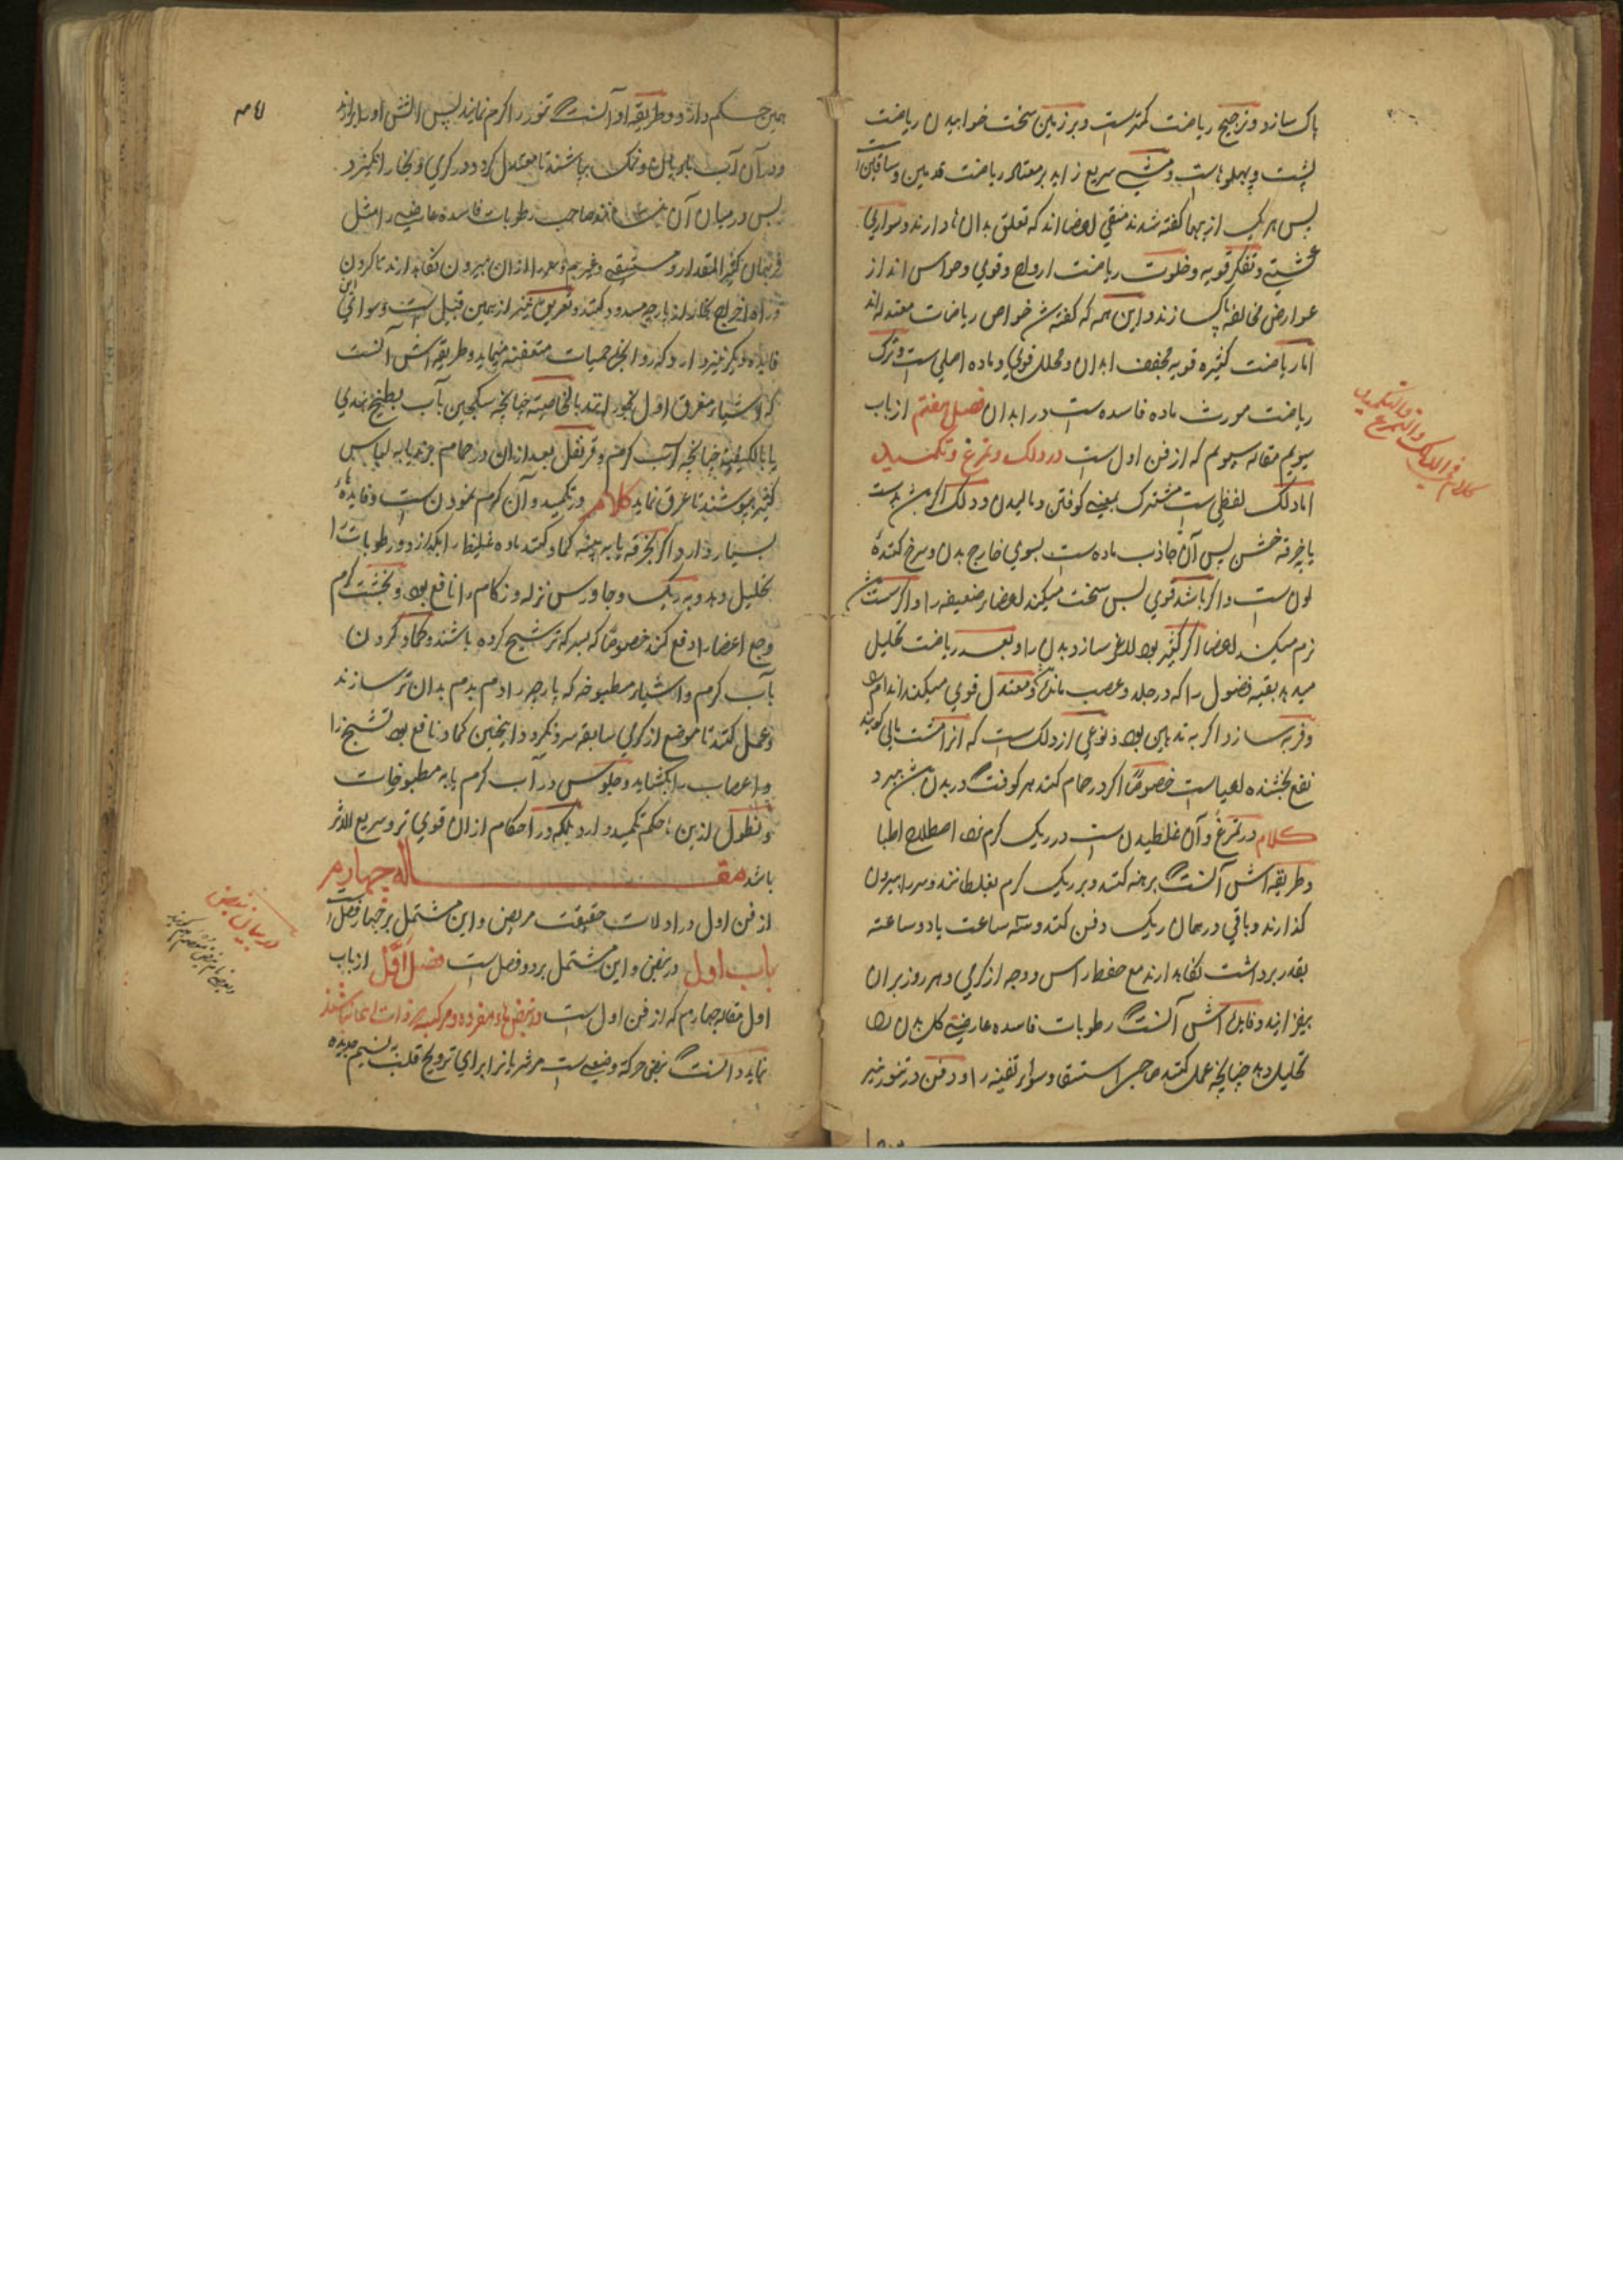 پاک سازد و ترجیح ریاضت کمتر است و بر زمین سخت خوابیدن ریاضت
پشت و پهلوها ست و مشی سریع زاید بر معتاد ریاضت قدمین و ساقین است
پس هر یک ازینها گفته شدند منقی اعضا اند که تعلق بدان ها دارند و سواری
کشتی و تفکر قویه و خلوت ریاضت ارواح و قوی و حواس اند از
عوارض مخالفه پاک سازند و این همه که گفته شد خواص ریاضات معتدله اند
اما ریاضت کثیره قویه مجفف ابدان و محلل قوی و ماده اصلی ست و ترک
ریاضت مورث ماده فاسده ست در ابدان فصل هفتم از باب
سیویم مقاله سیویم که از فن اول ست در دلک و تمرغ و تکمید
اما دلک لفظی ست مشترک بمعنی کوفتن و مالیدن و دلک اگر بدست
یا خرقه خشن پس آن جاذب ماده ست بسوی خارج بدن و سرخ کننده
لون ست و اگر باشد قوی پس سخت میکند اعضاء ضعیفه را و اگر سست باشد
نرم میکند اعضا اگر کثیر بود لاغر سازد بدن را و بعد ریاضت تحلیل
میدهد بقیه فضول را که در جلد و عصب مانده و معتدل قوی میکند اندام را
و فربه سازد اگر به تدهین بود و نوعی از دلک ست که آنرا مشت مالی گویند
نفع بخشنده اعیاست خصوصاً اگر در حمام کنند هر کوفت در بدن باشد ببرد
کلام در تمرغ و آن غلطیدن ست در ریک گرم نزد اصطلاح اطبا
و طریقه اش آنست برهنه کنند و بر ریک گرم بغلطانند و سر را بیرون
گذارند و باقی در همان ریک دفن کنند و سه ساعت یا دو ساعته
بقدر برداشت نگاه دارند مع حفظ راس و وجه از گرمی و هر روز بران
بیفزایند و فایده اش آنست رطوبات فاسده عارضی کل بدن را
تحلیل دهد چنانچه عمل کنند صاحب استسقا و سوء القنیه را و دفن در تنور نیز
۴۱
همین حکم دارد و طریقه او آنست تنور را گرم نمایند پس آتش او را برآرند
و در آن آب با بابل و نمک بپاشند تا معتدل گردد در گرمی و بخار انگیزد
پس در میان آن نشانند صاحب رطوبات فاسده عارضی را مثل
فربهان کثیر المقدار و مستسقی و غیرهم و سر را از آن بیرون نگاه دارند تا گردن
و راه اخراج بخار از پارچه مسدود کنند و تعریق نیز از همین قبیل ست و سوای این
فایده دیگر نیز دارد که رد انواع حمیات متعفنه مینماید و طریقه اش آنست
که اشیاء معرق اول بخورانند بالخاصیه چنانچه سکنجبین بآب بطیخ هندی
یا بالکیفیه چنانچه آب گرم و قرنفل بعد از آن در حمام برند یا به لباس
کثیر بپوشند تا عرق نماید کلام در تکمید و آن گرم نمودن ست و فایده ها
بسیار دارد اگر بخرقه یا به پنبه کماد کنند ماده غلیظ را بگدازد و رطوبات را
تحلیل دهد و به ریک و جاورس نزله و زکام را نافع بود و بخشت گرم
وجع اعضا را دفع کند خصوصاً که بسرکه ترشیح کرده باشند و کماد کردن
بآب گرم و اشیاء مطبوخه که پارچه را دم بدم بدان تر سازند
و عمل کنند تا موضع از گرمی سابقه سرد نگردد اینچنین کماد نافع بود تشنج را
و اعصاب را بکشاید و جلوس در آب گرم یا به مطبوخات
و نطول ازین ها حکم تکمید دارد بلکه در احکام از آن قوی تر و سریع الاثر
باشد مقاله چهارم
از فن اول در ادلات حقیقت مریض و این مشتمل بر چهار فصل است
باب اول در نبض و این مشتمل بر دو فصل ست فصل اول از باب
اول مقاله چهارم که از فن اول ست در نبض هاء مفرده و مرکبه
نماید دانست نبض حرکة وضعیه ست مر شریان را برای ترویح قلب به نسیم
کلام فی الدلک والتمرغ والتکمید
در بیان نبض